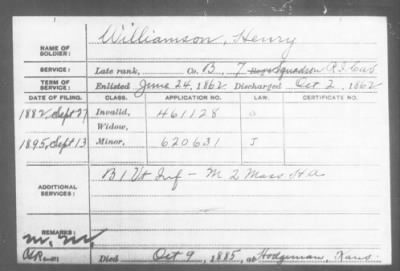 Williamson, Henry
NAME OF SOLDIER:
SERVICE: Late rank, Co. B, 7 Squadron R.I. Cav
TERM OF SERVICE: Enlisted June 24, 1862 Discharged Oct 2, 1862
DATE OF FILING. CLASS. APPLICATION NO. LAW. CERTIFICATE NO.
1882, Sept 27 Invalid, 461128
Widow,
1895, Sept 13 Minor, 620631 J
ADDITIONAL SERVICES: B 1 Vt Inf — M 2 Mass H A
REMARKS:
Died Oct 9, 1885, at Hodgeman, Kans